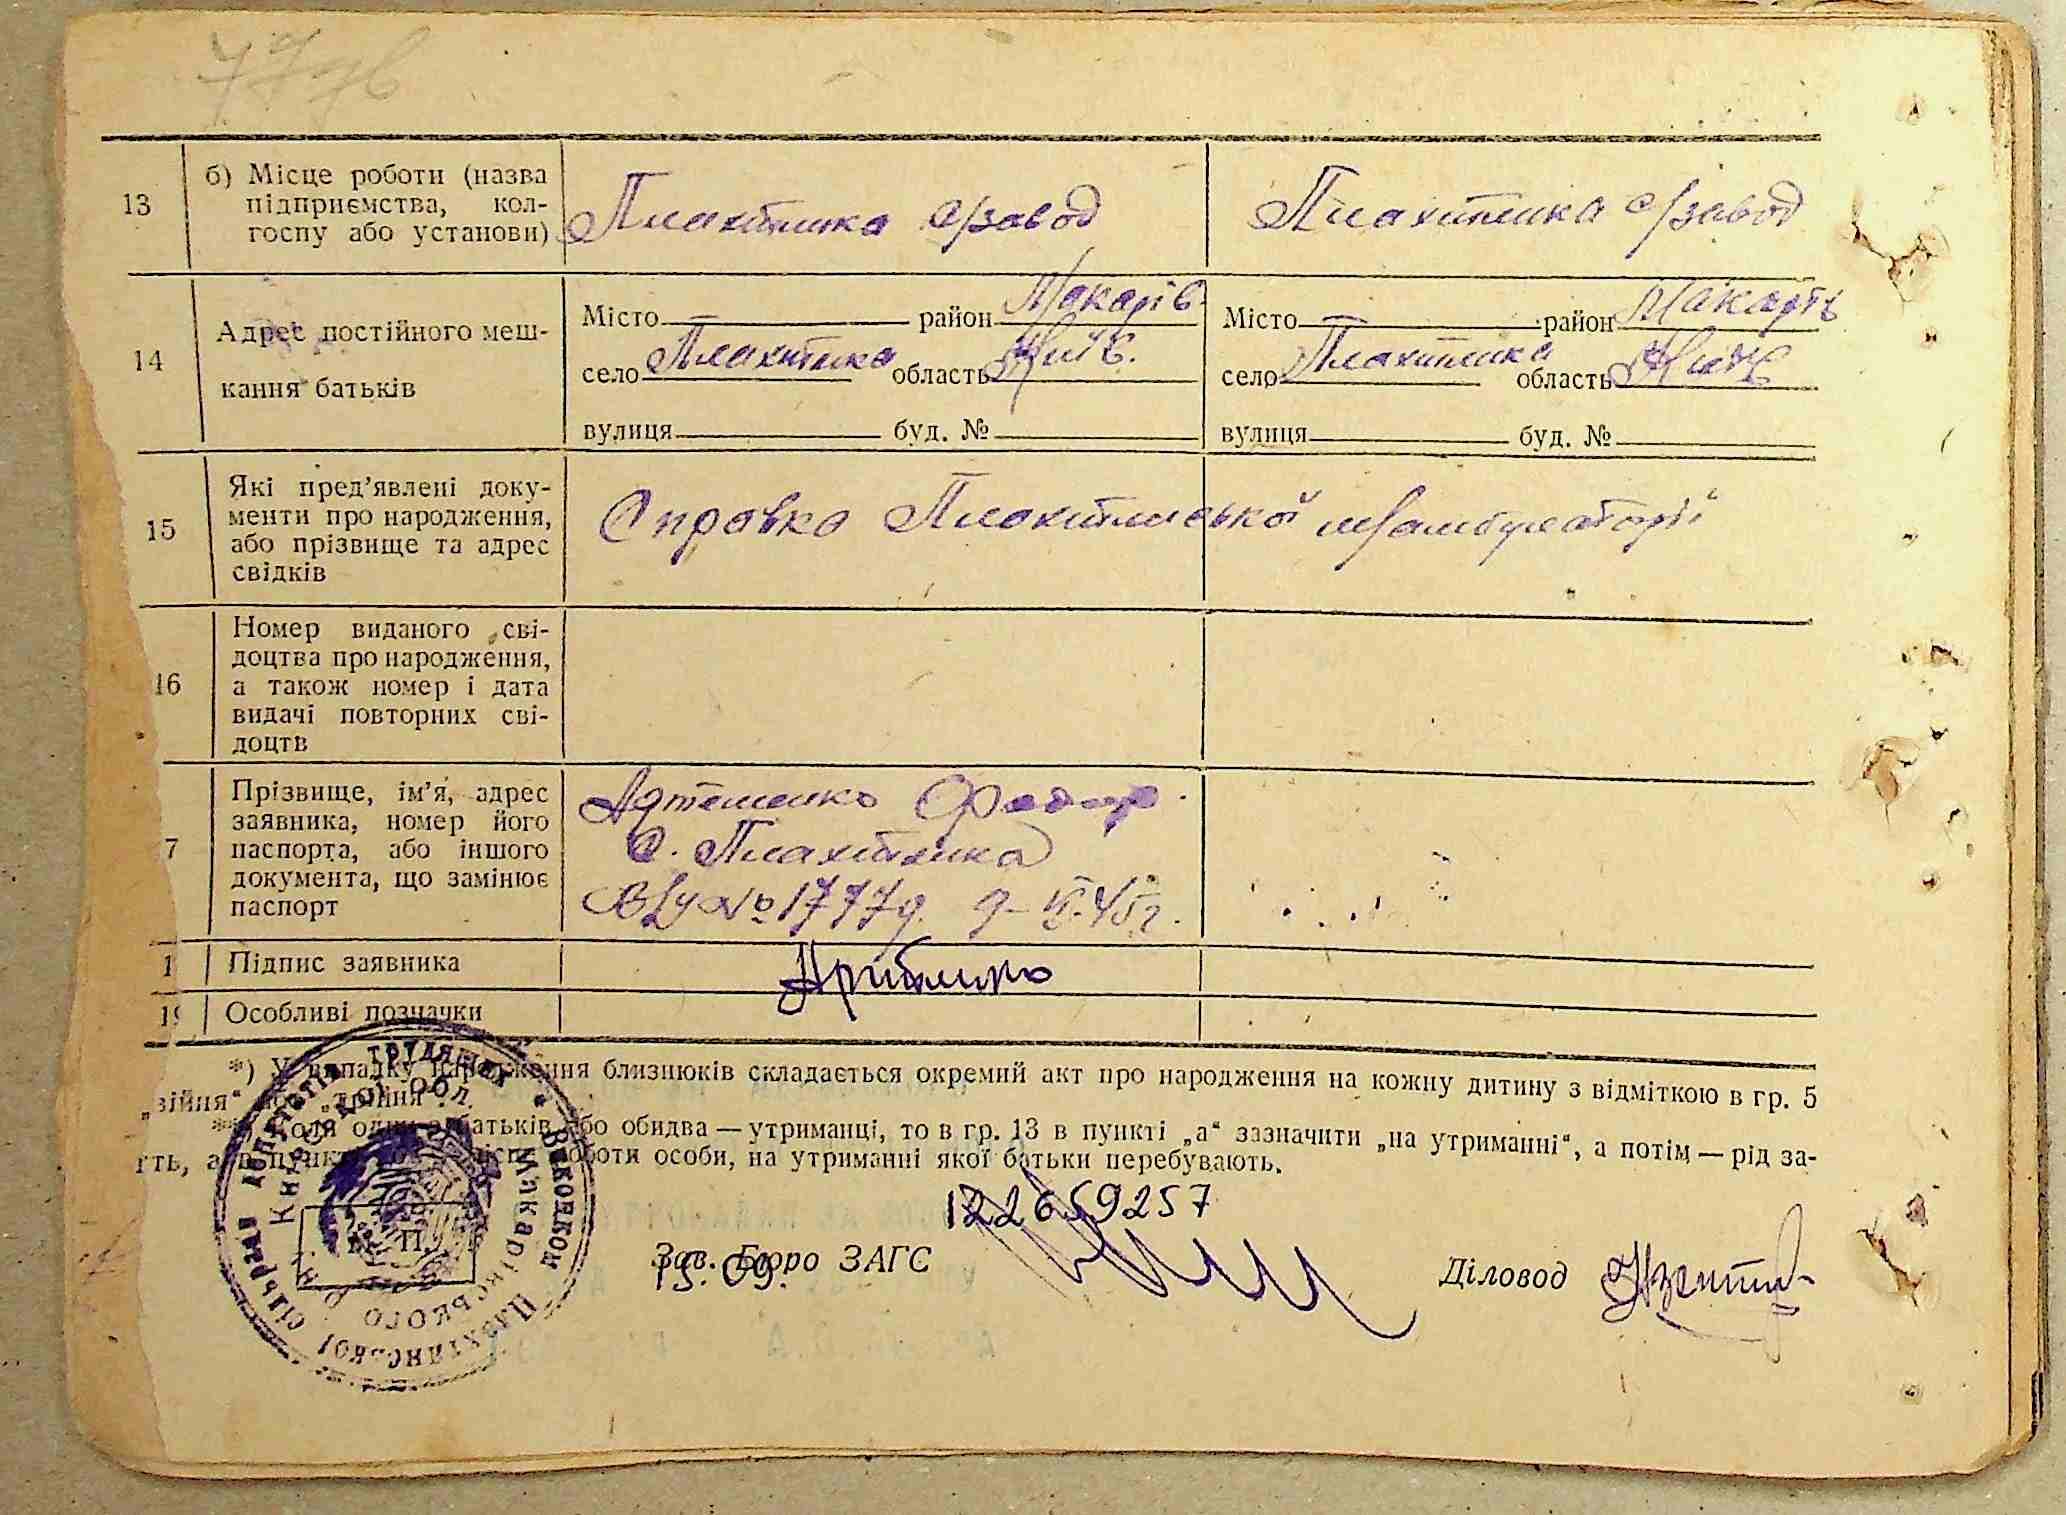 77зв
13 б) Місце роботи (назва
підприємства, кол-
госпу або установи)
Плахтянка с/завод Плахтянка с/завод
14 Адрес постійного меш-
кання батьків
Місто район Макарів. Місто район Макарів
село Плахтянка область Київ. село Плахтянка область Київ
вулиця буд. № вулиця буд. №
15 Які пред’явлені доку-
менти про народження,
або прізвище та адрес
свідків
Справка Плахтянської амбулаторії
16 Номер виданого сві-
доцтва про народження,
а також номер і дата
видачі повторних сві-
доцтв
7 Прізвище, ім’я, адрес
заявника, номер його
паспорта, або іншого
документа, що замінює
паспорт
Федор
с. Плахтянка
№ 1777
1 Підпис заявника
19 Особливі позначки
*) У випадку народження близнюків складається окремий акт про народження на кожну дитину з відміткою в гр. 5
„війня“ або „трійня“.
** Коли один з батьків або обидва — утриманці, то в гр. 13 в пункті „а“ зазначити „на утриманні“, а потім — рід за-
ять, а в пункті місце роботи особи, на утриманні якої батьки перебувають.
Виконком Плахтянської сільради депутатів трудящих
Макарівського р-ну Київської обл.
М. П.
122659257
Зав. Бюро ЗАГС
15.09.
Діловод